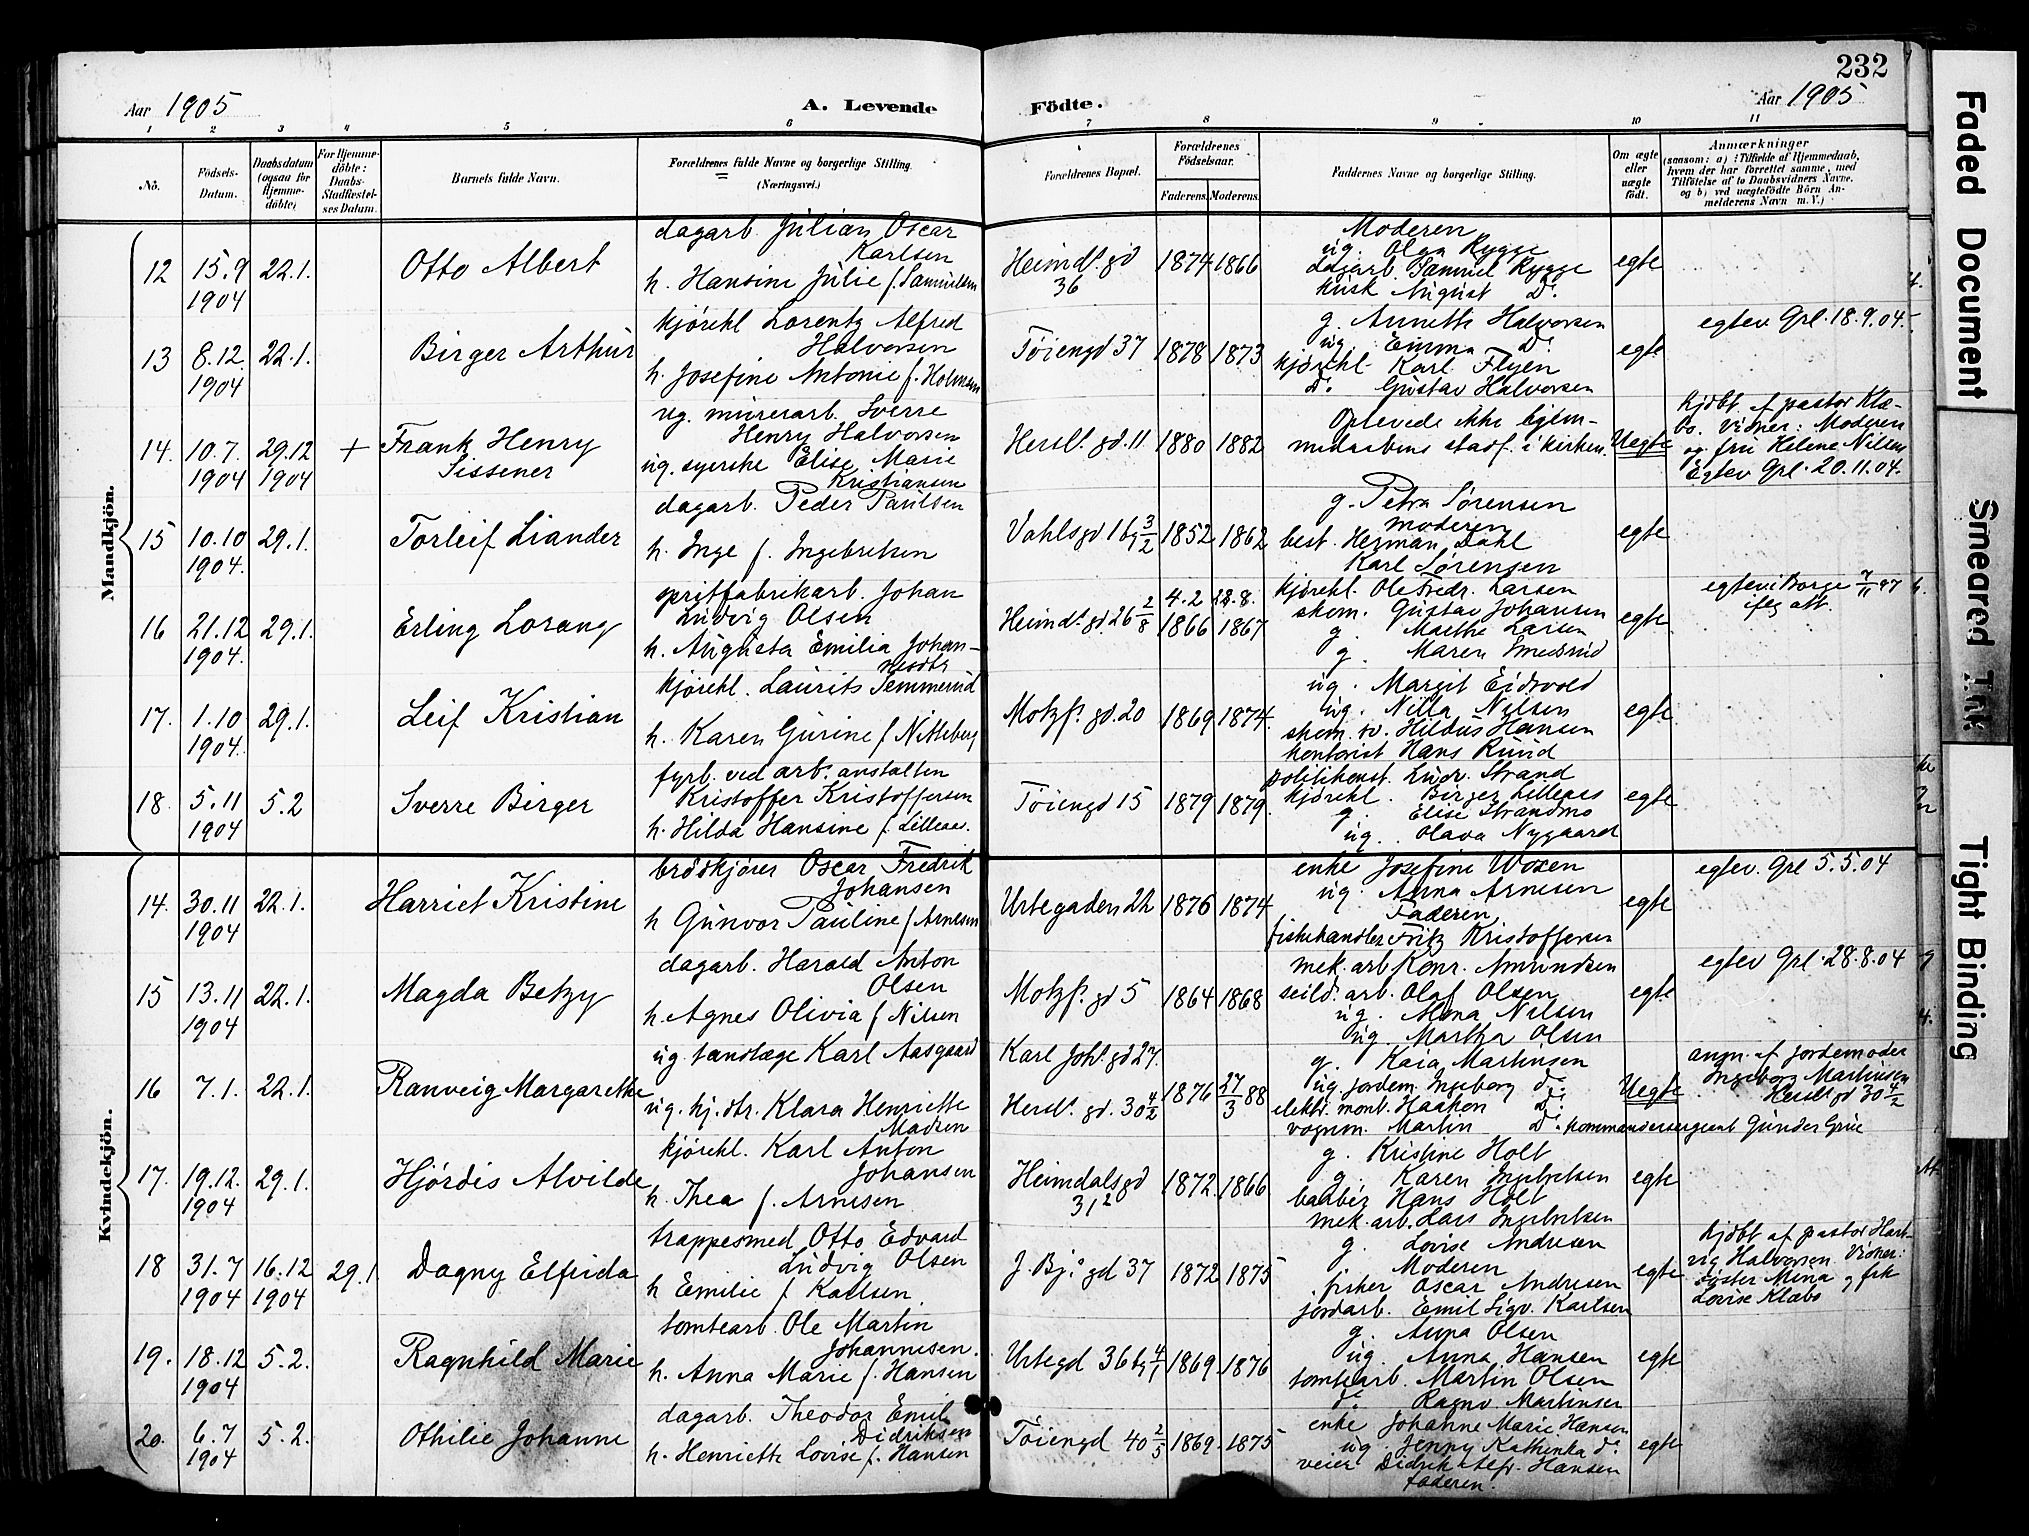 232
Aar 1905
A. Levende
Födte.
Aar 1905
1 2 3 4 5 6 7 8 9 10 11
No.
Födsels-Datum.
Daabsdatum (ogsaa for Hjemme-döbte)
For Hjemme-döbte: Daabs-Stadfæstel-ses Datum.
Barnets fulde Navn.
Forældrenes fulde Navne og borgerlige Stilling. (Næringsvei.)
Forældrenes Bopæl.
Forældrenes Födselsaar.
Faderens. Moderens.
Faddernes Navne og borgerlige Stilling.
Om ægte eller uægte födt.
Anmærkninger
(saasom: a) i Tilfælde af Hjemmedaab, hvem der har forrettet samme, med Tilföielse af to Daabsvidners Navne. og b) ved uægtefödte Börn An-melderens Navn m. V.)
Mandkjön.
12 15.9 1904 22.1. Otto Albert
dagarb. Julian Oscar
Karlsen
h. Hansine Julie f. Samuelsen
Heimd. gd 36 1874 1866
Moderen
ug. Olga Rygge
dagarb. Samuel Rygge
kusk August do.
egte
13 8.12 1904 22.1. Birger Arthur
kjørekl Lorentz Alfred
Halvorsen
h. Josefine Antonie f. Holmsen
Tøiengd 37 1878 1873
g. Annette Halvorsen
ug. Emma do.
kjørekl. Karl Flyen
do. Gustav Halvorsen
egte
egtev. Grl. 18.9.04.
14. 10.7. 1904 29.12 1904 + Frank Henry
Sissener
ug. murerarb. Sverre
Henry Halvorsen
ug. syerske Elise Marie
Kristiansen
Hersl. gd. 11 1880 1882
Oplevede ikke hjem-
medaabens stadf. i kirken.
Uegte
hjdbt. af pastor Klæ-
bo. Vidner: Moderen
og fru Helene Nilsen
Egtev Grl. 20.11.04.
15 10.10 1904. 29.1. Torleif Liander
dagarb. Peder Paulsen
h. Inge f. Ingebretsen
Vahlsgd 1 bg 3/2 1852 1862
g. Petra Sørensen
Moderen
best. Herman Dahl
Karl Sørensen
egte
16 21.12 1904. 29.1. Erling Lorang
spritfabrikarb. Johan
Ludvig Olsen
h. Augusta Emilia Johan-
nesdtr
Heimd. gd. 26 2/8 4.2 1866 28.8. 1867
kjørekl. Ole Fredr. Larsen
skom. Gustav Johansen
g. Marthe Larsen
g. Maren Smedsrud
egte
egtev. i Borge 7/11 97
ifg att.
17. 1.10 1904. 29.1. Leif Kristian
kjørekl. Laurits Temmerud
h. Karen Gurine f. Nitteberg
Motzf. gd. 20 1869 1874.
ug. Margit Eidsvold
ug. Nilla Nilsen
skom. sv. Hildus Hansen
kontorist Hans Ruud
egte
18. 5.11 1904 5.2 Sverre Birger
fyrb. ved arb. anstalten
Kristoffer Kristoffersen
h. Hilda Hansine f. Lilleaas.
Tøiengd 15 1879 1879.
politikonst. Ludv. Strand
kjørekl. Birger Lilleaas
g. Elise Strandmo
ug. Olava Nygaard
egte
Kvindekjön.
14. 30.11 1904 22.1. Harriet Kristine
brødkjører Oscar Fredrik
Johansen
h Gunvor Pauline f. Arnesen
Urtegaden 22 1876 1874
enke Josefine Woxen
ug. Anna Arnesen
Faderen
fiskehandler Fritz Kristoffersen
egte
egtev. Grl 5.5.04
15 13.11 1904 22.1. Magda Betzy
dagarb. Harald Anton
Olsen
h. Agnes Olivia f. Nilsen
Motzf. gd 5 1864 1868
mek. arb Konr. Amundsen
seild. arb. Olaf Olsen
ug. Alma Nilsen
ug Martha Olsen
egte
egtev Grl. 28.8.04
16 7.1. 22.1. Ranveig Margarethe
ug. tandlæge Karl Aasgaard
ug. hj. dtr. Klara Henriette
Madsen
Karl Joh. gd 27.
Hersl. gd. 30 4/2 1876 27/3 88
g. Kaia Martinsen
ug. jordem. Ingeborg do.
elektr. mont. Haakon do.
vognm. Martin do. kommandersergeant Gunder Grue
Uegte
anm. af jordemoder
Ingeborg Martinsen
Hersl. gd 30 4/2
17. 19.12. 1904 29.1. Hjørdis Alvilde
kjørekl. Karl Anton
Johansen
h. Thea f. Arnesen
Heimdalsgd 31² 1872. 1866
g. Kristine Holt
g. Karen Ingebretsen
Hans Holt
mek. arb. Lars Ingebretsen
egte
18 31.7 1904 16.12 1904 29.1 Dagny Elfrida
trappesmed Otto Edvard
Ludvig Olsen
h Emilie f Karlsen
J. Bj. gd 37 1872 1875
g. Lovise Andresen
Moderen
fisker Oscar Andresen
jordarb. Emil Sigv. Karlsen
egte
hjdbt af pastor Hart-
vig Halvorsen. Vidner:
Søster Mina og frk
Lovise Klæbo
19. 18.12 1904 5.2. Ragnhild Marie
tomtearb. Ole Martin
Johannesen.
h. Anna Marie f. Hansen
Urtegd 36 bg 4/1 1869 1876
g. Anna Olsen
ug. Anna Hansen
tomtearb. Martin Olsen
do Ragnv Martinsen
egte
20. 6.7 1904 5.2. Othilie Johanne
dagarb. Theodor Emil
Didriksen
h. Henriette Lovise f. Hansen
Tøiengd 40 2/5 1869. 1875
enke Johanne Marie Hansen
ug Jenny Kathinka do.
veier Didrik Alfr. Hansen
faderen.
egte
Faded Document
Smeared Ink
Tight Binding